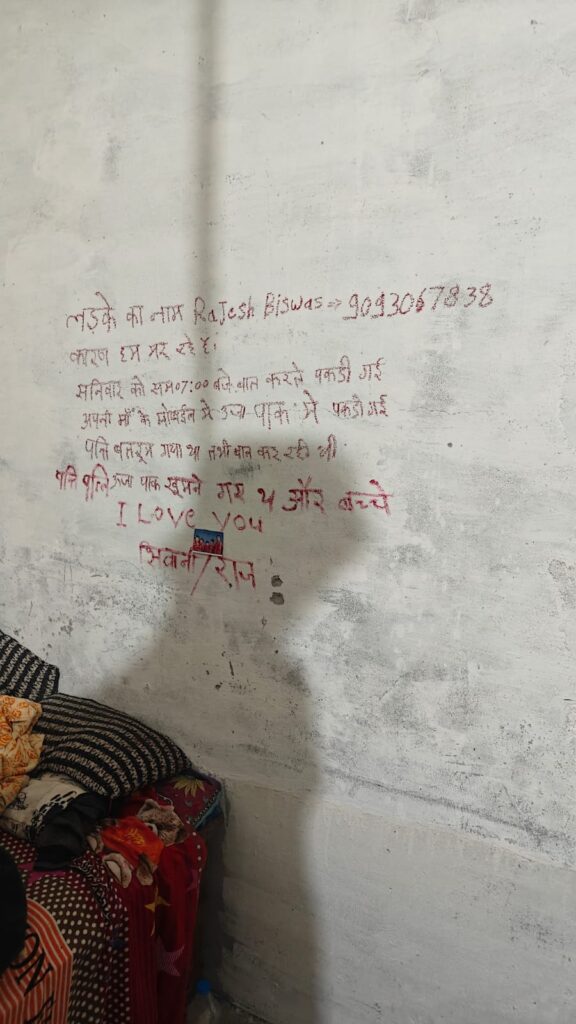 लड़के का नाम Rajesh Biswas => 9093067838
कारण हम मर रहे है।
सनिवार को सम 07:00 बजे बात करते पकडी गई
अपनी माँ के मोबाईल मे उर्जा पाक मे पकडी गई
पति बातरूम गया था तभी बात कर रही थी
पति पत्नि उर्जा पाक घूमने गए थे और बच्चे
I Love You
शिवानी/राज